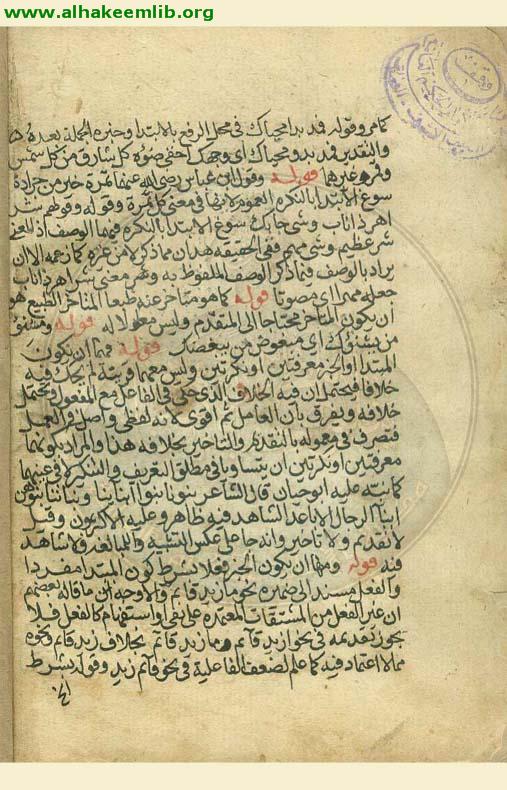 www.alhakeemlib.org
كما مر وقوله قد بدا محياك في محل الرفع بالابتدا وخبره الجملة بعده
والتقدير قد بدو محياك اي وجهك اخفى ضوءه كل شارق من كل شمس
وقمر وغيرهما قوله وقول ابن عباس رضي الله عنهما تمرة خير من جرادة
سوغ الابتدا بالنكرة العموم لانها في معنى كل تمرة وقوله وقولهم شر
اهر ذا ناب وشي جابك سوغ الابتدا بالنكرة فيهما الوصف اذ المعنى
شر عظيم وشي مهم ففي الحقيقة هذان مما ذكر لا من غيره كما زعمه الا ان
يراد بالوصف فيما ذكر الوصف الملفوظ به ومعنى شر اهر ذا ناب
جعله مهرا اي مصوتا قوله كما هو متاخر عنه طبعا المتاخر بالطبع هو
ان يكون المتاخر محتاجا الى المتقدم وليس معلولا له قوله ومشنوء
من يشنؤك اي مبغوض من يبغضك قوله فيهما ان يكون
المبتدا والخبر معرفتين او نكرتين وليس معهما قرينة
خلافا فيحتمل ان فيه الخلاف الذي حكى في الفاعل مع المفعول ويحتمل
خلافه ويفرق بان العامل ثم اقوى لانه لفظي واصل في العمل
فتصرف في معموله بالتقديم والتاخير بخلافه هذا والمراد بكونهما
معرفتين او نكرتين ان يتساويا في مطلق التعريف والتنكير لا في عينهما
كما نبه عليه ابو حيان قال الشاعر بنونا بنوا ابنائنا وبناتنا بنوهن
ابنا الرجال الاباعد الشاهد فيه ظاهر وعليه الاكثرون وقيل
لا تقديم ولا تاخير وانه جا على عكس التشبيه والمبالغة ولا شاهد
فيه قوله ومنها ان يكون الخبر فعلا بشرط كون المبتدا مفردا
والفعل مسند الى ضميره نحو ما زيد قام والاوجه ان ما قاله بعضهم
ان غير الفعل من المشتقات المعتمدة على نفي او استفهام كالفعل فلا
يجوز تقديمه في نحو ازيد قائم وما زيد قائم بخلاف زيد قائم ونحوه
مما لا اعتماد فيه كما علم لضعف الفاعلية في نحو قائم زيد وقوله بشرط
الخ